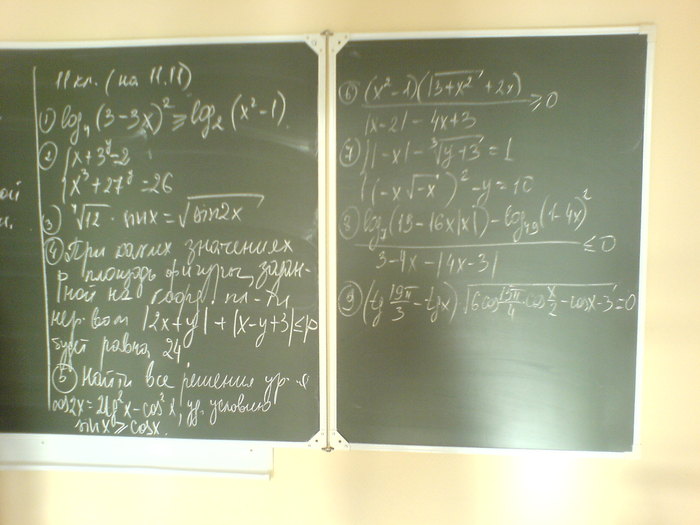 ой
11 кл. (на 11.11)
① log₄ (3-3x)² ≥ log₂ (x²-1).
② { x + 3^y = 2
x³ + 27^y = 26
③ ⁴√12 · sinx = √sin2x
④ При каких значениях
p площадь фигуры, задан-
ной на коорд. пл-ти
нер-вом |2x+y| + |x-y+3| ≤ p
будет равна 24
⑤ Найти все решения ур-я
cos2x = 2tg²x - cos²x, уд. условию
sinx ≥ cosx.
⑥ (x²-1)(√3+x² + 2x)
/ |x-2| - 4x+3 ≥ 0
⑦ { |-x| - ³√y+3 = 1
(-x√-x)² - y = 10
⑧ log₇(15-16x|x|) - log₄₉(1-4x)²
/ 3-4x-|4x-3| ≤ 0
⑨ (tg 19π/3 - tgx) √6cos 15π/4 · cos x/2 - cosx - 3 = 0